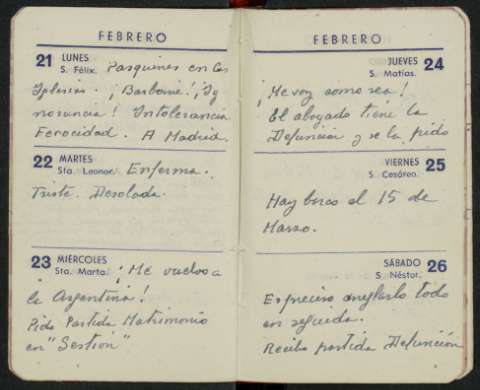 FEBRERO
21 LUNES
S. Félix. Pasquines en las
Iglesias. ¡Barbarie! ¡Ig
norancia! Intolerancia
Ferocidad. A Madrid.
22 MARTES
Sta. Leonor. Enferma.
Triste. Desolada.
23 MIÉRCOLES
Sta. Marta. ¡Me vuelvo a
la Argentina!
Pido Partida Matrimonio
en "Sestion"
FEBRERO
JUEVES 24
S. Matías.
¡Me voy como sea!
El abogado tiene la
Defunción y se la pido
VIERNES 25
S. Cesáreo.
Hay barco el 15 de
Marzo.
SÁBADO 26
S. Néstor.
Es preciso arreglarlo todo
en seguida.
Recibo partida Defunción